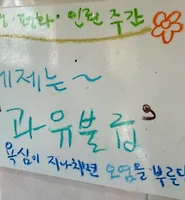 · 평화 · 인권 주간
제는~
"과유불급"
욕심이 지나치면 오염을 부른다